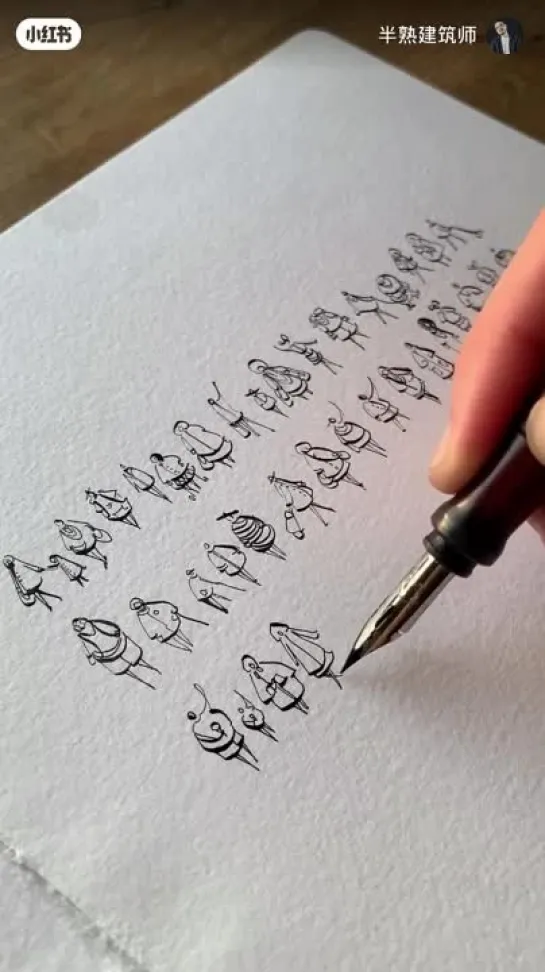 小红书
半熟建筑师